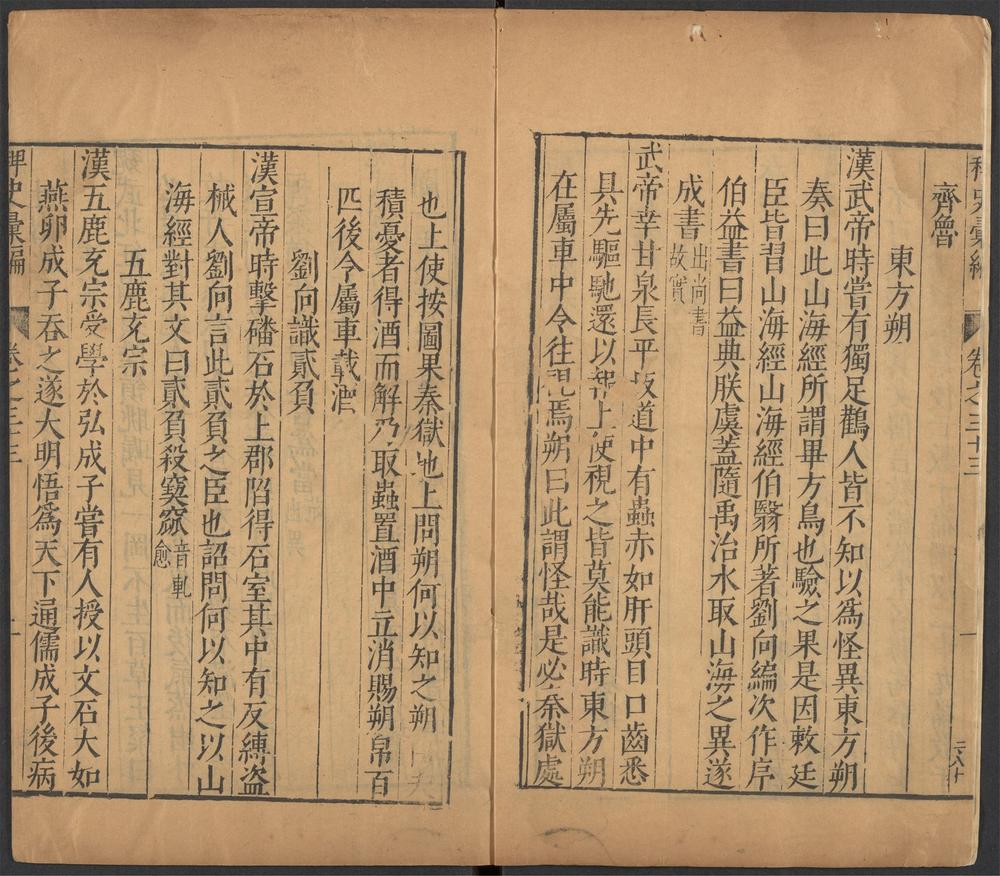 稗史彙編 卷之三十三 一
齊魯
東方朔
漢武帝時嘗有獨足鸛人皆不知以爲怪異東方朔
奏曰此山海經所謂畢方鳥也驗之果是因敕廷
臣皆習山海經山海經伯翳所著劉向編次作序
伯益書曰益典朕虞蓋隨禹治水取山海之異遂
成書出尚書故實
武帝幸甘泉長平坂道中有蟲赤如肝頭目口齒悉
具先驅馳還以報上使視之皆莫能識時東方朔
在屬車中令往視焉朔曰此謂怪哉是必秦獄處
也上使按圖果秦獄地上問朔何以知之朔曰夫
積憂者得酒而解乃取蟲置酒中立消賜朔帛百
匹後令屬車載酒
劉向識貳負
漢宣帝時擊磻石於上郡陷得石室其中有反縛盜
械人劉向言此貳負之臣也詔問何以知之以山
海經對其文曰貳負殺窫窳音軋愈
五鹿充宗
漢五鹿充宗受學於弘成子嘗有人授以文石大如
燕卵成子吞之遂大明悟爲天下通儒成子後病
稗史彙編 卷之三十三 一